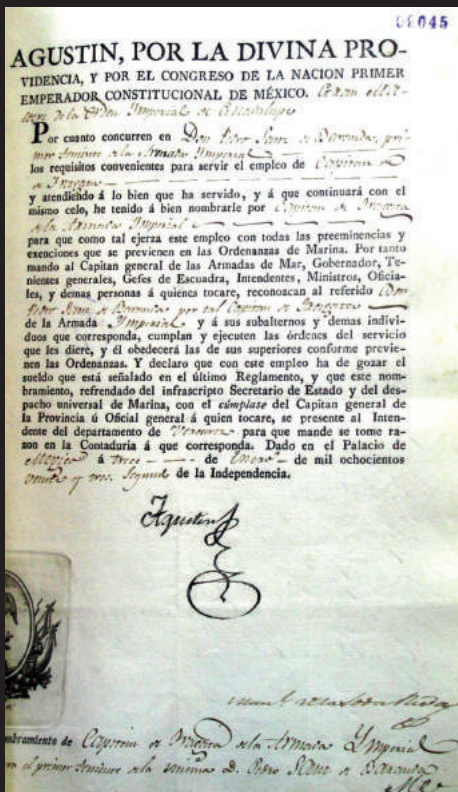 08045
AGUSTIN, POR LA DIVINA PRO-
VIDENCIA, Y POR EL CONGRESO DE LA NACION PRIMER
EMPERADOR CONSTITUCIONAL DE MÉXICO. Gran Ma-
estre de la Orden Imperial de Guadalupe
Por cuanto concurren en Don Pedro Sainz de Baranda, pri-
mer Teniente de la Armada Imperial
los requisitos convenientes para servir el empleo de Capitan de
de Fragata
y atendiendo á lo bien que ha servido, y á que continuará con el
mismo celo, he tenido á bien nombrarle por Capitan de Fragata
de la Armada Imperial
para que como tal ejerza este empleo con todas las preeminencias y
exenciones que se previenen en las Ordenanzas de Marina. Por tanto
mando al Capitan general de las Armadas de Mar, Gobernador, Te-
nientes generales, Gefes de Escuadra, Intendentes, Ministros, Oficia-
les, y demas personas á quienes tocare, reconozcan al referido Don
Pedro Sainz de Baranda por tal Capitan de Fragata
de la Armada Imperial y á sus subalternos y demas indivi-
duos que corresponda, cumplan y ejecuten las órdenes del servicio
que les diere, y él obedecerá las de sus superiores conforme previe-
nen las Ordenanzas. Y declaro que con este empleo ha de gozar el
sueldo que está señalado en el último Reglamento, y que este nom-
bramiento, refrendado del infrascripto Secretario de Estado y del des-
pacho universal de Marina, con el cúmplase del Capitan general de
la Provincia ú Oficial general á quien tocare, se presente al Inten-
dente del departamento de Veracruz para que mande se tome ra-
zon en la Contaduría á que corresponda. Dado en el Palacio de
Mexico á trece de Enero de mil ochocientos
veinte y tres. Segundo de la Independencia.
Agustin
mbramiento de Capitan de Fragata de la Armada Ymperial
el primer Teniente de la misma D. Pedro Sainz de Baranda